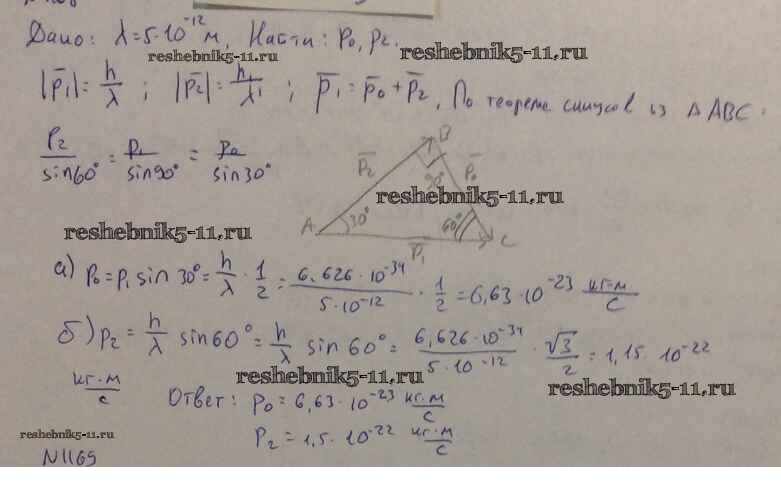 Дано: λ=5·10⁻¹² м, Найти: p₀, p₂.
reshebnik5-11.ru
reshebnik5-11.ru
|p̅₁|= h/λ ; |p̅₂|= h/λ' ; p̅₁=p̅₀+p̅₂, По теореме синусов из ΔABC:
p₂/sin60° = p₁/sin90° = p₀/sin30°
p̅₂ B p̅₀
90°
reshebnik5-11.ru
A 30° 60° C
p̅₁
reshebnik5-11.ru
а) p₀=p₁ sin 30°= h/λ · 1/2 = 6,626·10⁻³⁴/5·10⁻¹² · 1/2 = 6,63·10⁻²³ кг·м/с
б) p₂= h/λ sin60°= h/λ sin 60°= 6,626·10⁻³⁴/5·10⁻¹² · √3/2 = 1,15·10⁻²²
кг·м/с
reshebnik5-11.ru
reshebnik5-11.ru
Ответ: p₀=6,63·10⁻²³ кг·м/с
p₂=1,5·10⁻²² кг·м/с
reshebnik5-11.ru
N1169